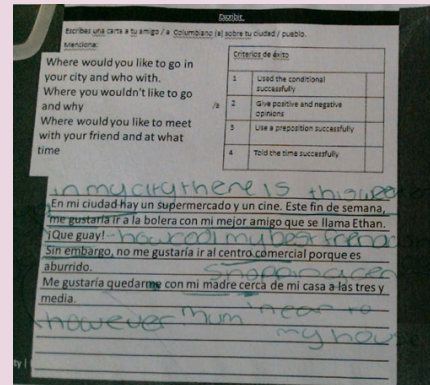 Escribir
Escribes una carta a tu amigo / a Columbiano (a) sobre tu ciudad / pueblo.
Menciona:
Where would you like to go in
your city and who with.
Where you wouldn't like to go
and why
Where would you like to meet
with your friend and at what
time
/a
Criterios de éxito
1 Used the conditional
successfully
2 Give positive and negative
opinions
3 Use a preposition successfully
4 Told the time successfully
in my city there is this
En mi ciudad hay un supermercado y un cine. Este fin de semana,
me gustaría ir a la bolera con mi mejor amigo que se llama Ethan.
¡Que guay! how cool my best friend
Sin embargo, no me gustaría ir al centro comercial porque es
aburrido.
shopping cen
Me gustaría quedarme con mi madre cerca de mi casa a las tres y
media.
however mum near to
my house